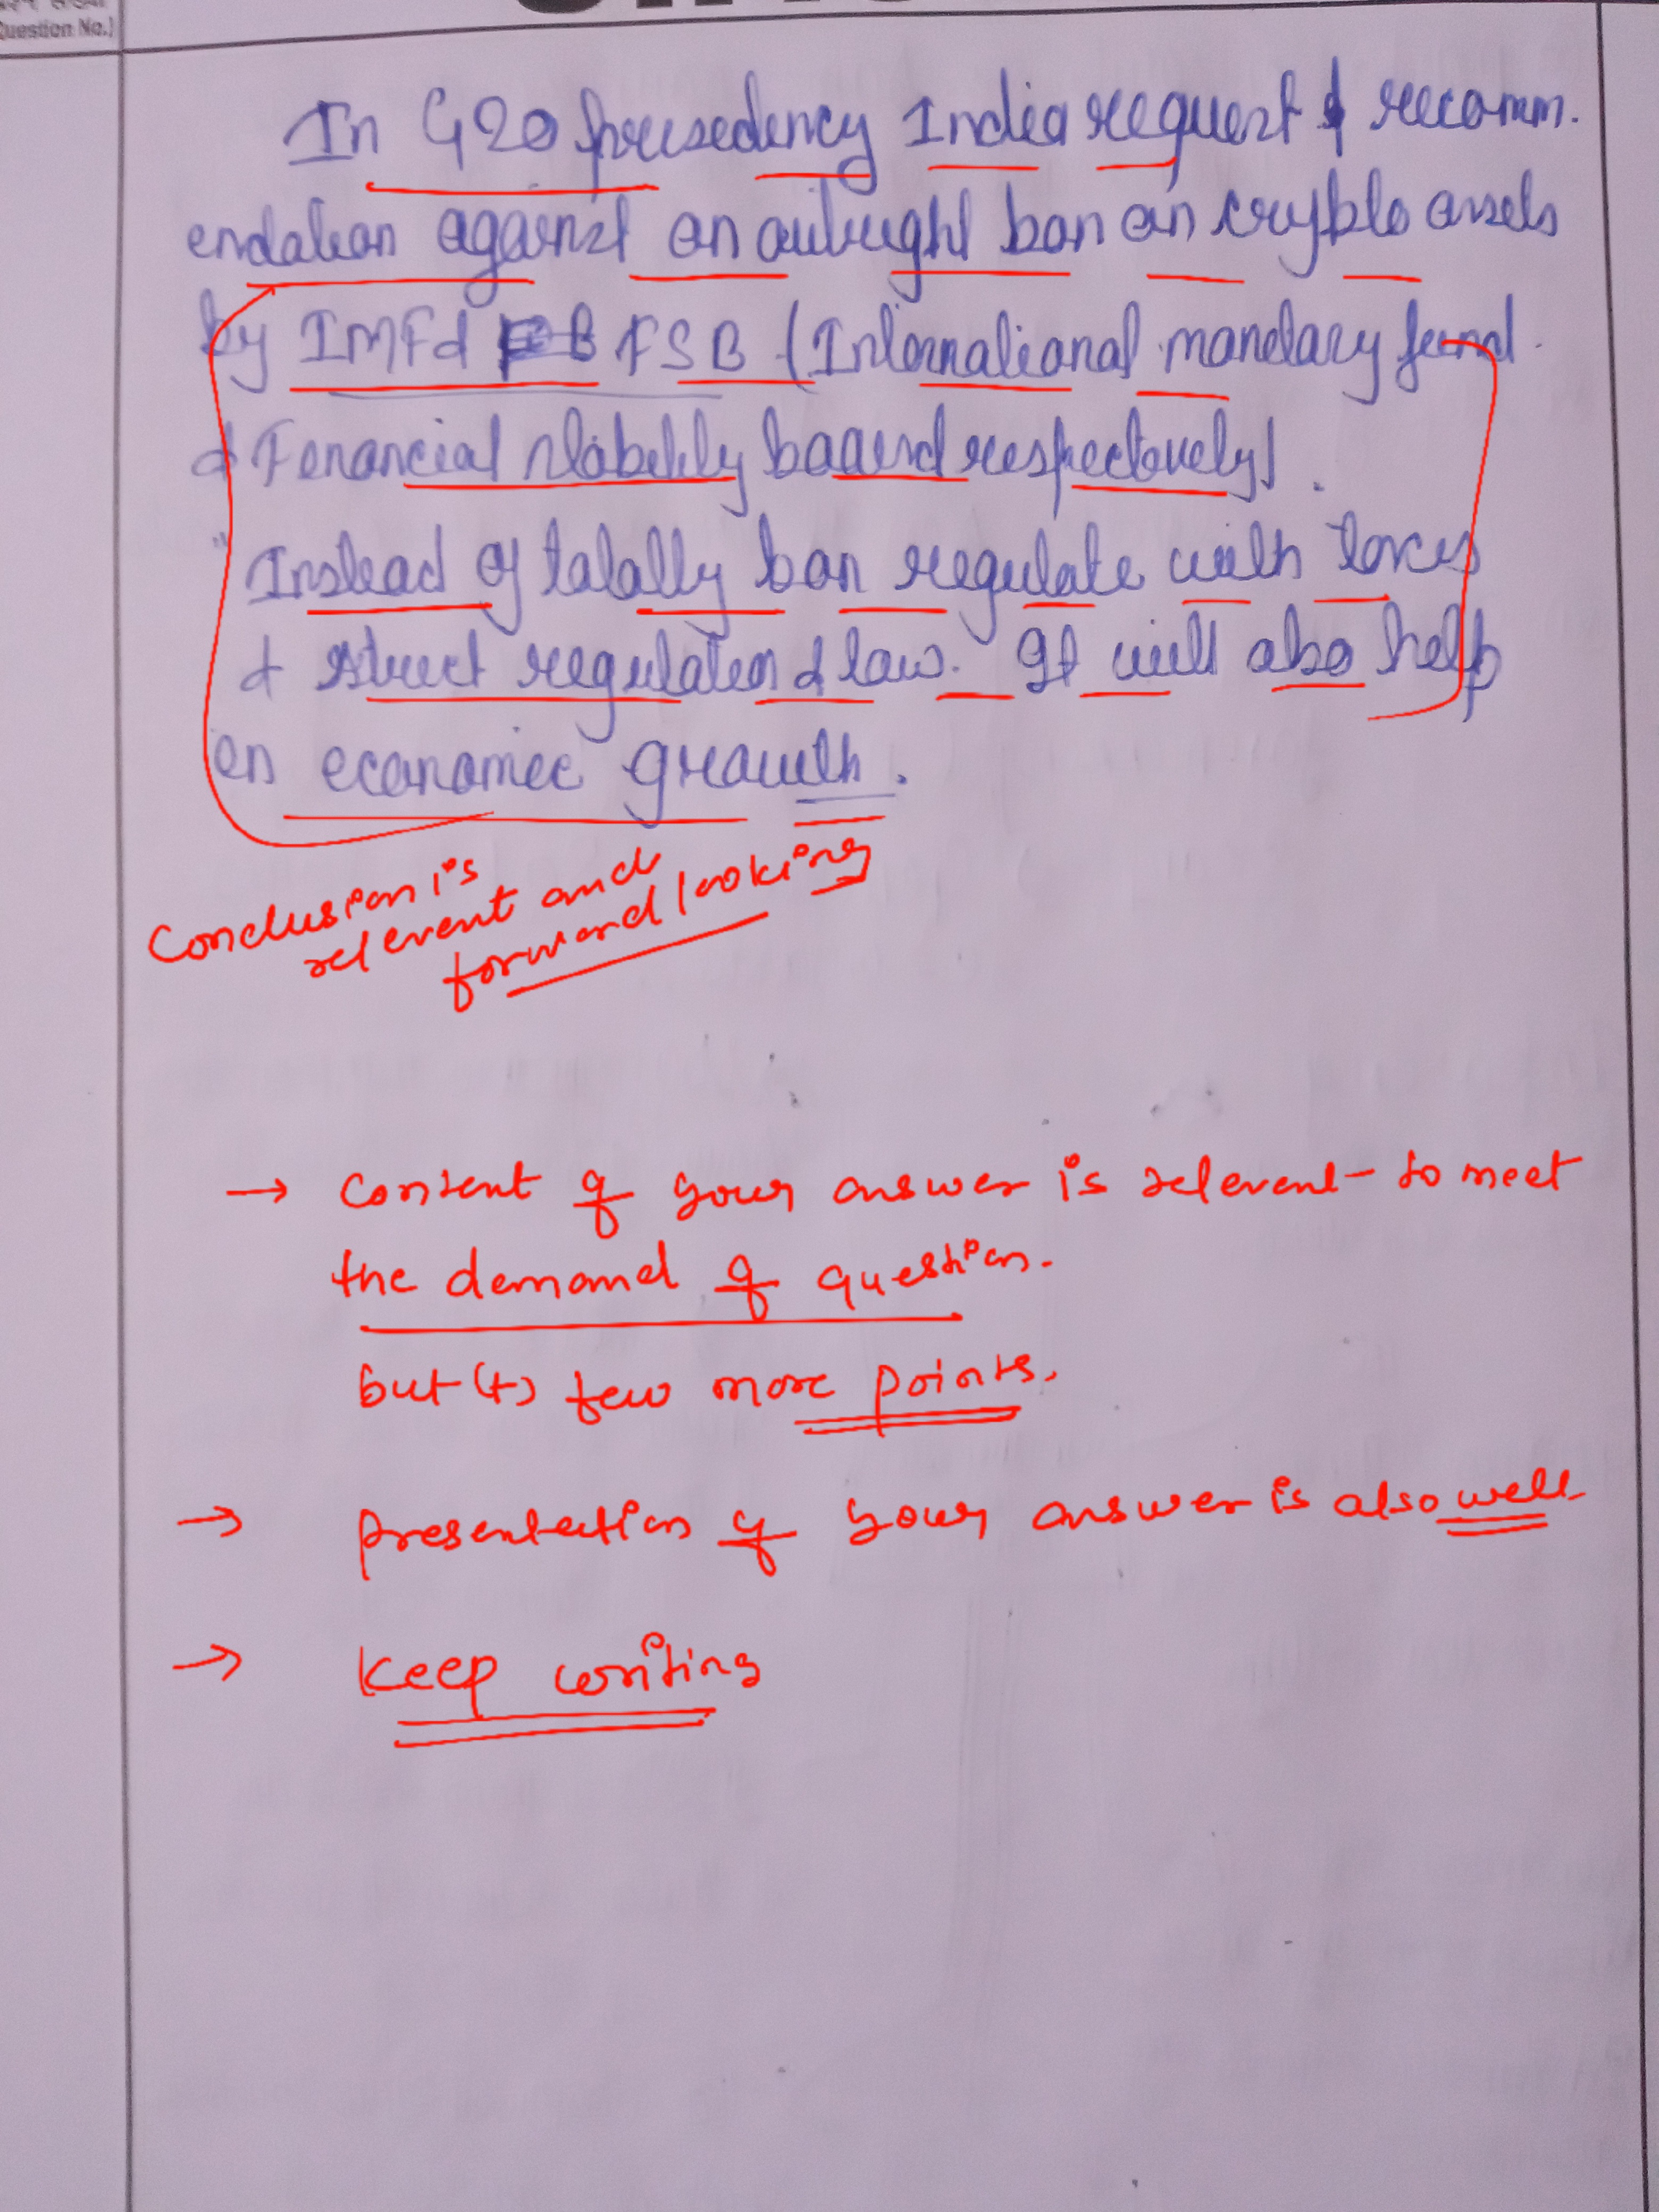 Question No.)
In G20 presedency India request & recomm.
endation against an outright ban on crypto assets
by IMF & FSB (International monetary fund
& Financial stability board respectively).
Instead of totally ban regulate with taxes
& strict regulation & law. It will also help
in economic growth.
Conclusion is
relevent and
forward looking
→ Content of your answer is relevent to meet
the demand of question.
but (+) few more points.
→ Presentation of your answer is also well
→ Keep writing